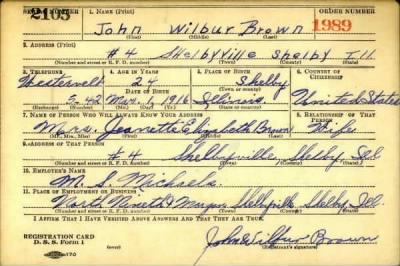 2105 1. NAME (Print) ORDER NUMBER
John Wilbur Brown 1989
(First) (Middle) (Last)
2. ADDRESS (Print)
# 4 Shelbyville Shelby Ill.
(Number and street or R. F. D. number) (Town) (County) (State)
3. TELEPHONE 4. AGE IN YEARS 5. PLACE OF BIRTH 6. COUNTRY OF CITIZENSHIP
Westervelt 24 Shelby
DATE OF BIRTH (Town or county)
Mar. 1916 Illinois United States
(Exchange) (Number) (Mo.) (Day) (Yr.) (State or country)
7. NAME OF PERSON WHO WILL ALWAYS KNOW YOUR ADDRESS 8. RELATIONSHIP OF THAT PERSON
Mrs. Jeanette Elizabeth Brown Wife
(Mr., Mrs., Miss) (First) (Middle) (Last)
9. ADDRESS OF THAT PERSON
# 4 Shelbyville, Shelby, Ill
(Number and street or R. F. D. number) (Town) (County) (State)
10. EMPLOYER'S NAME
Michaels
11. PLACE OF EMPLOYMENT OR BUSINESS
North Nineth & Morgan Shelbyville Shelby, Ill.
(Number and street or R. F. D. number) (Town) (County) (State)
I AFFIRM THAT I HAVE VERIFIED ABOVE ANSWERS AND THAT THEY ARE TRUE.
REGISTRATION CARD
D. S. S. Form 1
John Wilbur Brown
(Registrant's signature)